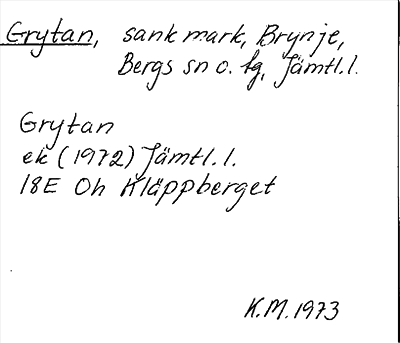 Grytan, sank mark, Brynje,
Bergs sn o. fg, Jämtl.l.
Grytan
ek (1972) Jämtl.l.
18E Oh Kläppberget
K.M.1973